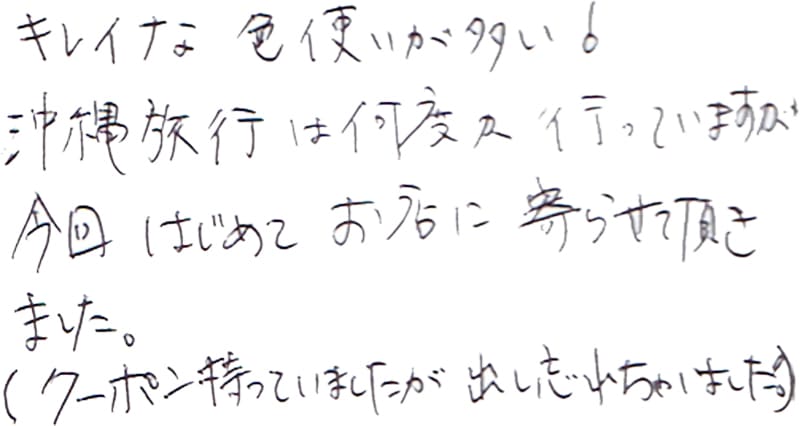 キレイナな色使いが多い!
沖縄旅行は何度又行っていますが
今回はじめてお店に寄らせて頂き
ました。
(クーポン持っていましたが出し忘れちゃいました)